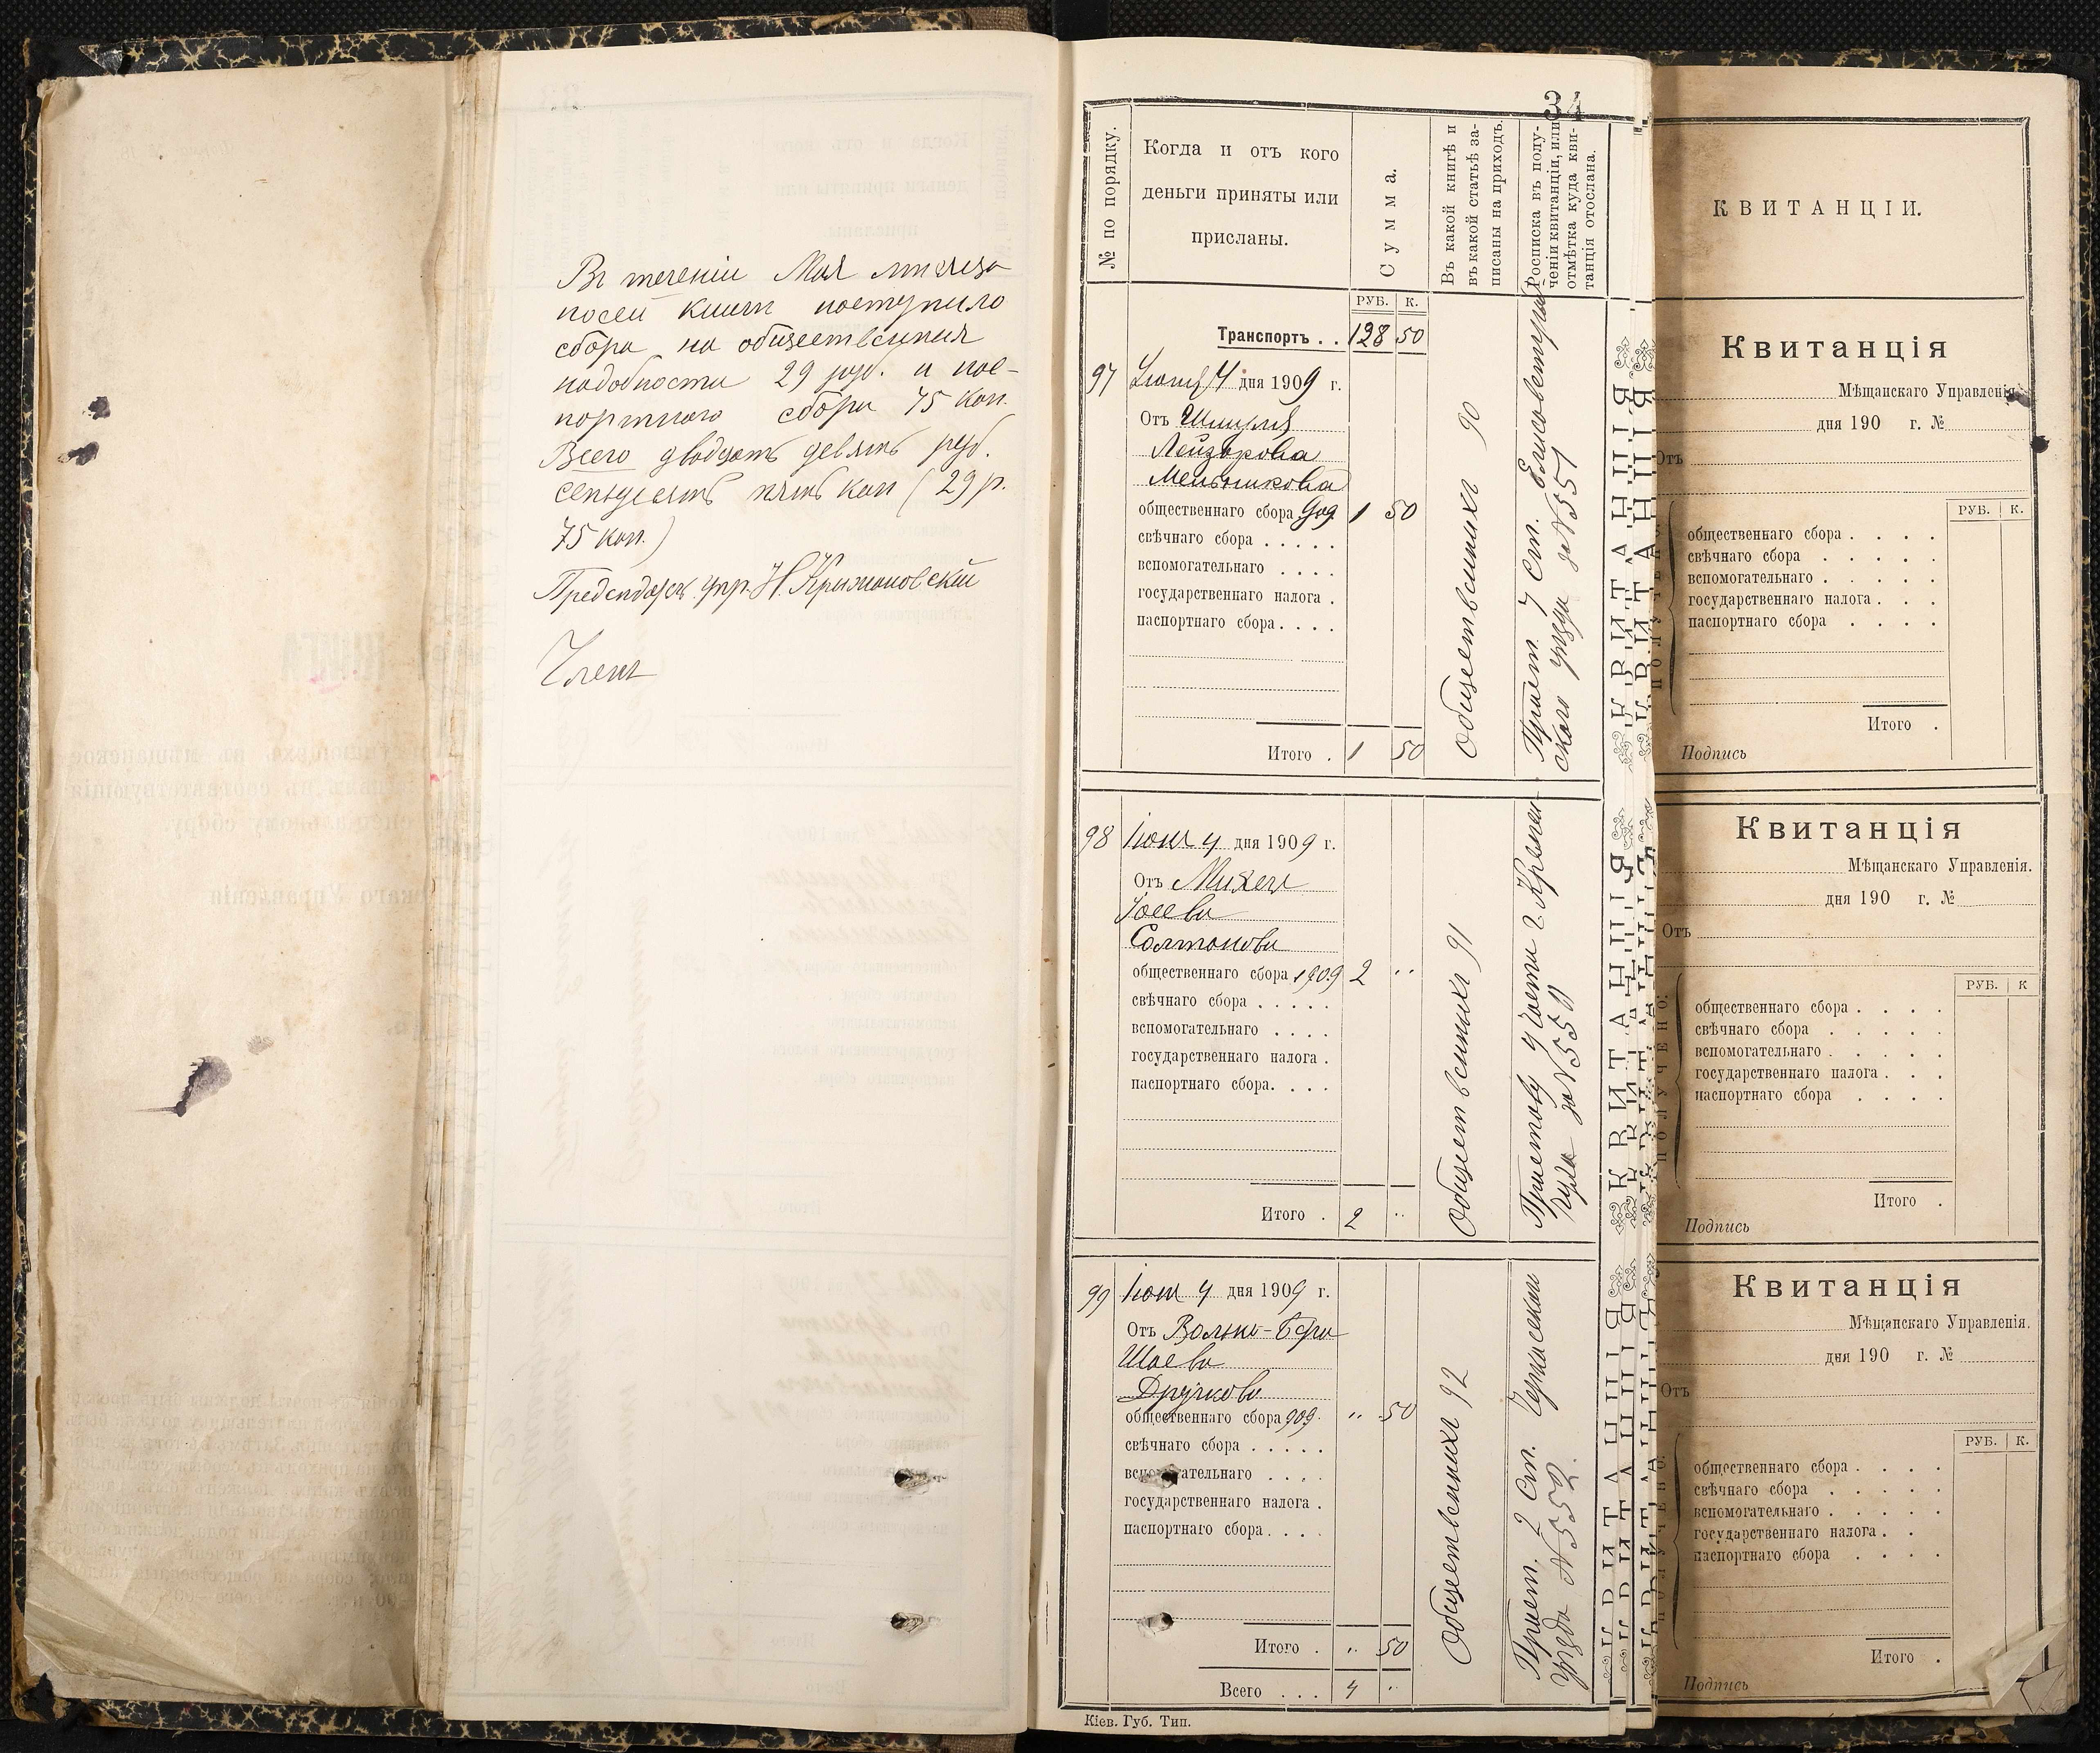 Въ теченіи Мая мѣсяца
по сей книгѣ поступило
сбора на общественныя
надобности 29 руб. и пас-
портнаго сбора 75 коп.
Всего двадцать девять руб.
семьдесятъ пять коп (29 р.
75 коп.)
Предсѣдат. упр. Н. Крыжановскій
Членъ
34
№ по порядку.
Когда и отъ кого
деньги приняты или
присланы.
Сумма.
Въ какой книгѣ и
въ какой статьѣ за-
писаны на приходъ.
Росписка въ полу-
ченіи квитанціи, или
отмѣтка куда кви-
танція отослана.
РУБ. К.
Транспортъ . . 128 50
97 4 дня 1909 г.
Отъ Шмуля
Лейзорова
Мельникова
общественнаго сбора 909 1 50
свѣчнаго сбора . . . . .
вспомогательнаго . . . .
государственнаго налога .
паспортнаго сбора . . . .
Итого . 1 50
Общественныхъ 90
Прист. 7 ст. Елисаветград
скаго уѣзда за № 551
98 Іюня 4 дня 1909 г.
Отъ Михеля
Іосева
Солтонова
общественнаго сбора 1909 2 "
свѣчнаго сбора . . . . .
вспомогательнаго . . . .
государственнаго налога .
паспортнаго сбора. . . .
Итого . 2 "
Общественныхъ 91
Приставу 4 части г. Кремен-
чуга за № 550
99 Іюня 4 дня 1909 г.
Отъ Волько-Бера
Шаева
Дручкова
общественнаго сбора 909. " 50
свѣчнаго сбора . . . . .
вспомогательнаго . . . .
государственнаго налога .
паспортнаго сбора . . . .
Итого . " 50
Всего . . . 4 "
Общественныхъ 92
Прист. 2 ст. Черкасскаго
уѣзда № 552.
Кіев. Губ. Тип.
КВИТАНЦІЯ
КВИТАНЦІЯ
КВИТАНЦІЯ
КВИТАНЦІИ.
Квитанція
Мѣщанскаго Управленія
дня 190 г. №
Отъ
РУБ. К.
ПОЛУЧЕНО:
общественнаго сбора . . . .
свѣчнаго сбора . . . . .
вспомогательнаго . . . . .
государственнаго налога . . .
паспортнаго сбора . . . .
Итого .
Подпись
Квитанція
Мѣщанскаго Управленія.
дня 190 г. №
Отъ
РУБ. К
ПОЛУЧЕНО:
общественнаго сбора . . . .
свѣчнаго сбора . . . . .
вспомогательнаго . . . . .
государственнаго налога . . .
паспортнаго сбора . . . .
Итого .
Подпись
Квитанція
Мѣщанскаго Управленія.
дня 190 г. №
Отъ
РУБ. К.
ПОЛУЧЕНО:
общественнаго сбора . . . .
свѣчнаго сбора . . . . .
вспомогательнаго . . . . .
государственнаго налога . . .
паспортнаго сбора . . . .
Итого .
Подпись